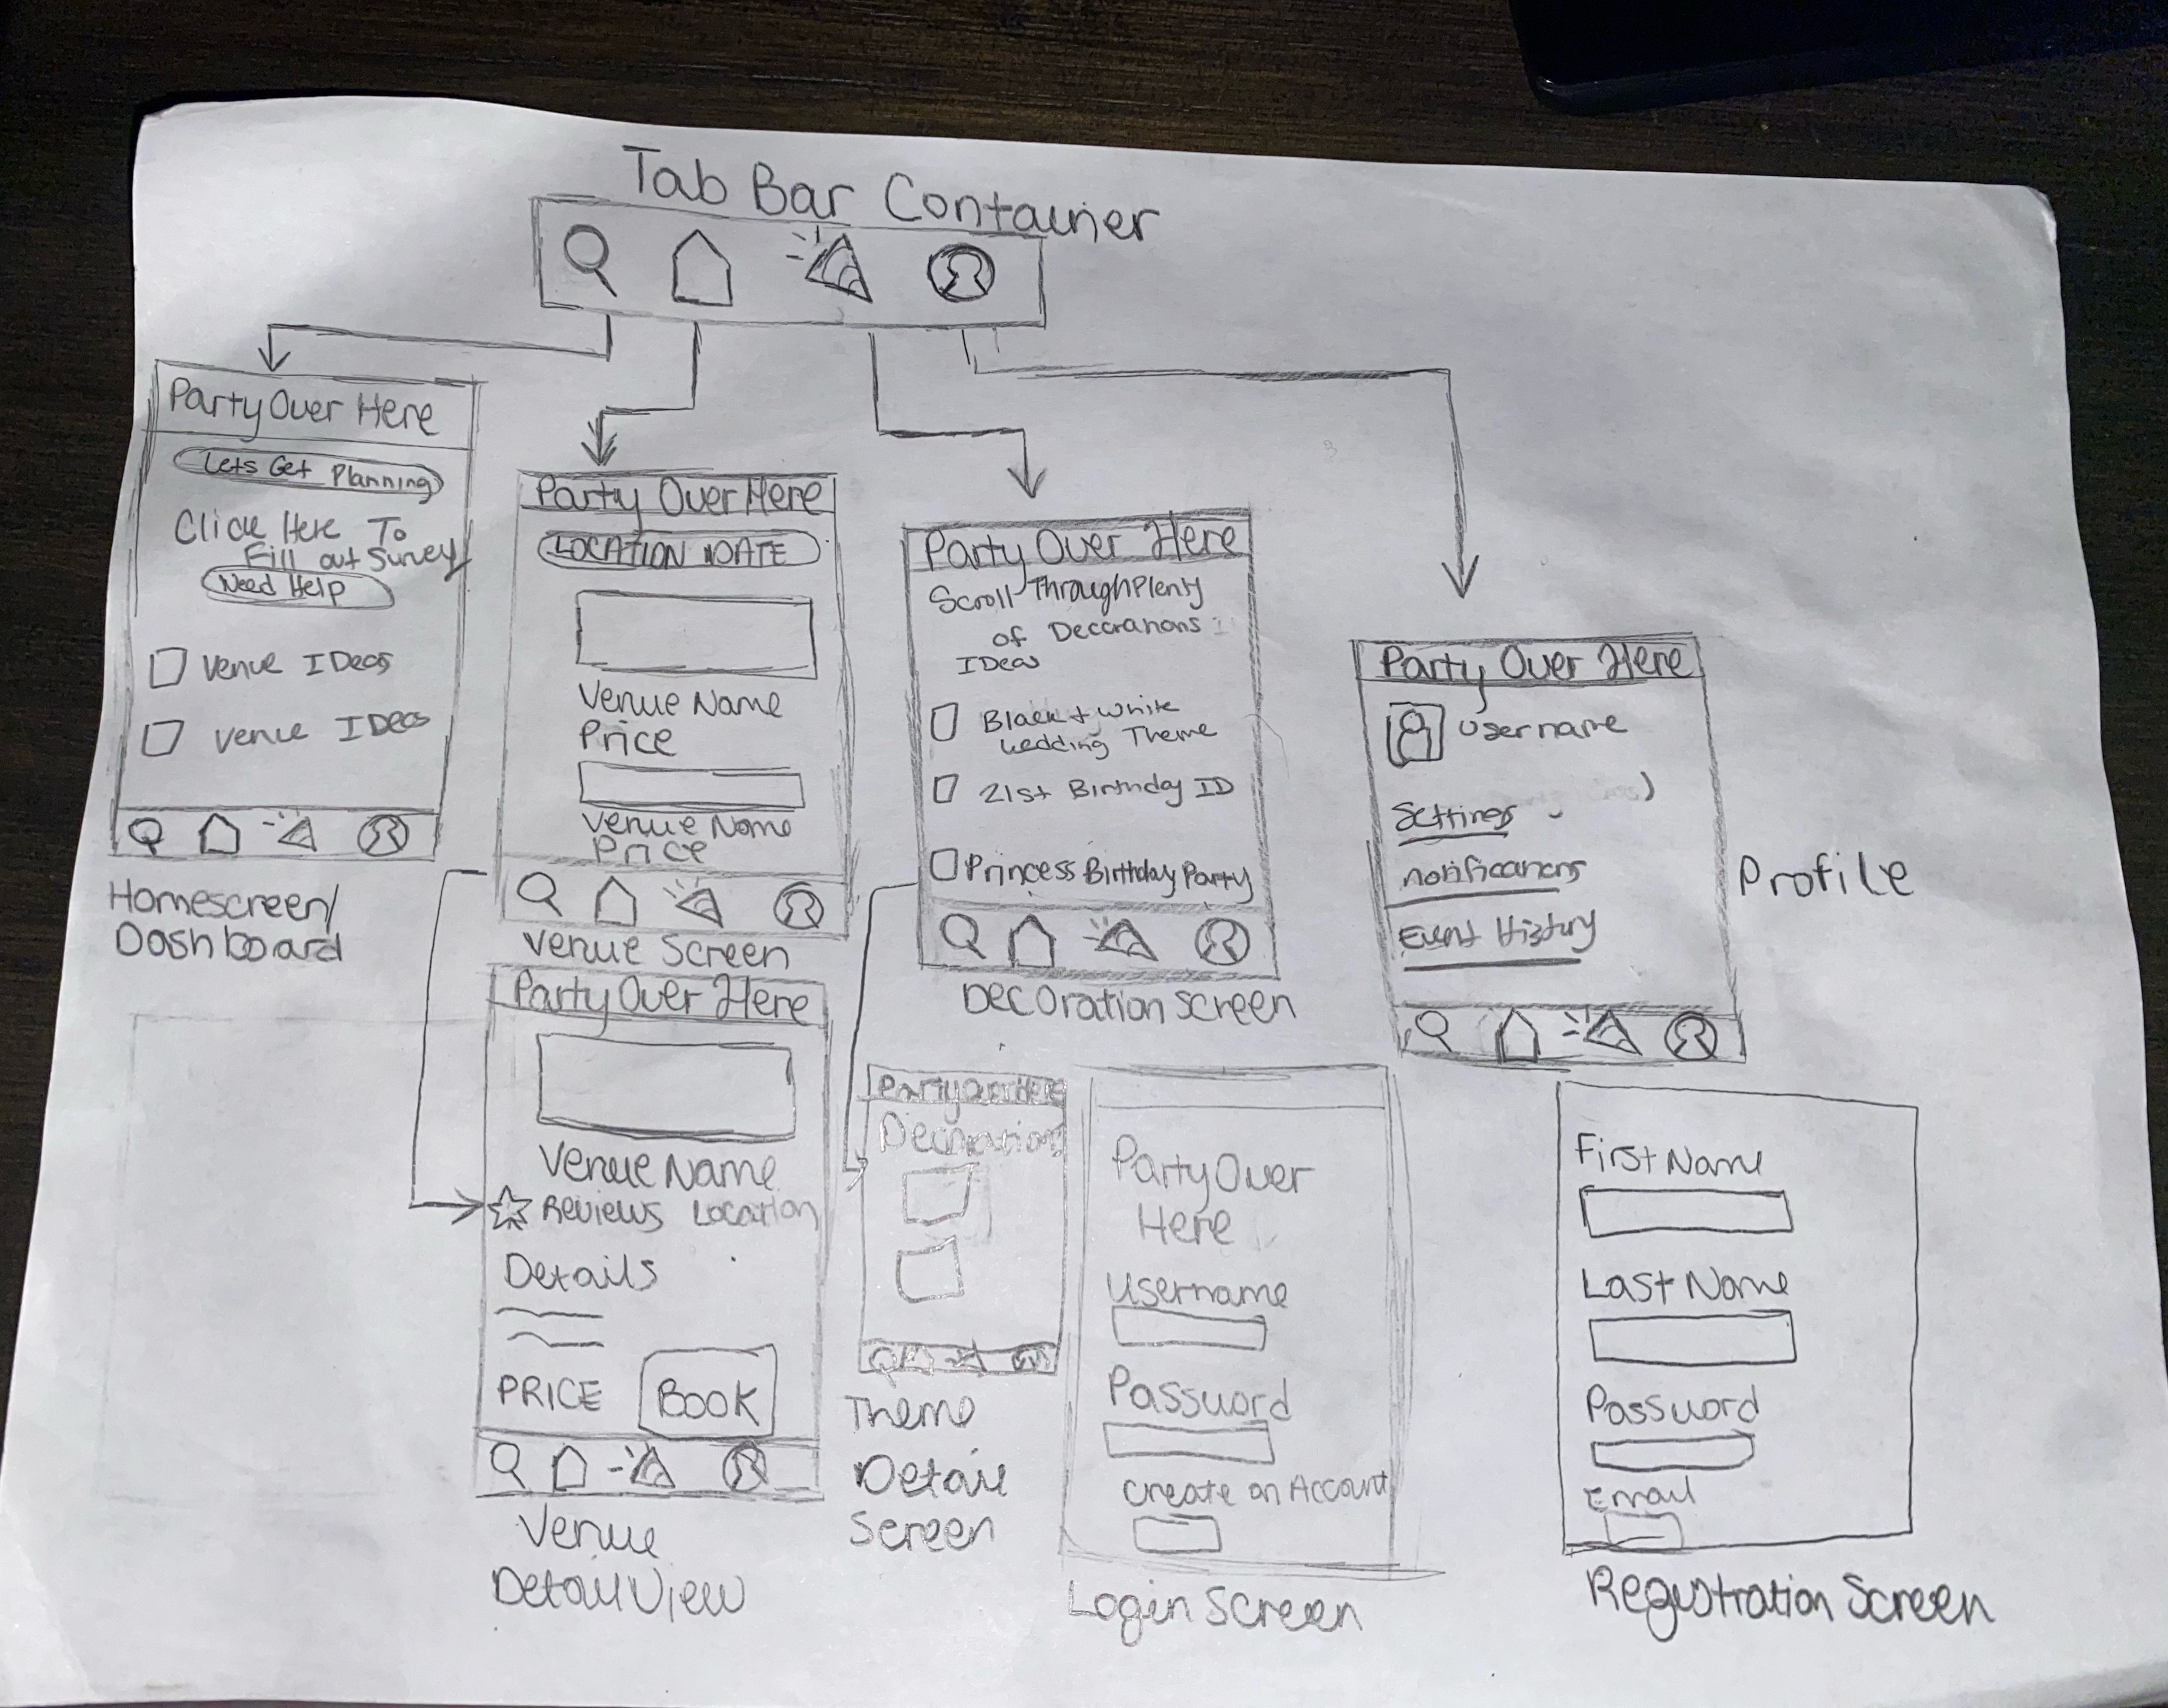 Tab Bar Container
Party Over Here
Lets Get Planning
Click Here To
Fill out Survey
Need Help
Venue IDeas
Venue IDeas
Homescreen/
Dashboard
Party Over Here
LOCATION DATE
Venue Name
Price
Venue Name
Price
Venue Screen
Party Over Here
Scroll Through Plenty
of Decorations
IDeas
Black + White
Wedding Theme
21st Birthday ID
Princess Birthday Party
Decoration Screen
Party Over Here
Username
Settings
notifications
Event History
Profile
Party Over Here
Venue Name
Reviews Location
Details
PRICE
BOOK
Venue
Detail View
Party Over Here
Decorations
Theme
Detail
Screen
Party Over
Here
Username
Password
Create an Account
Login Screen
First Name
Last Name
Password
Email
Registration Screen